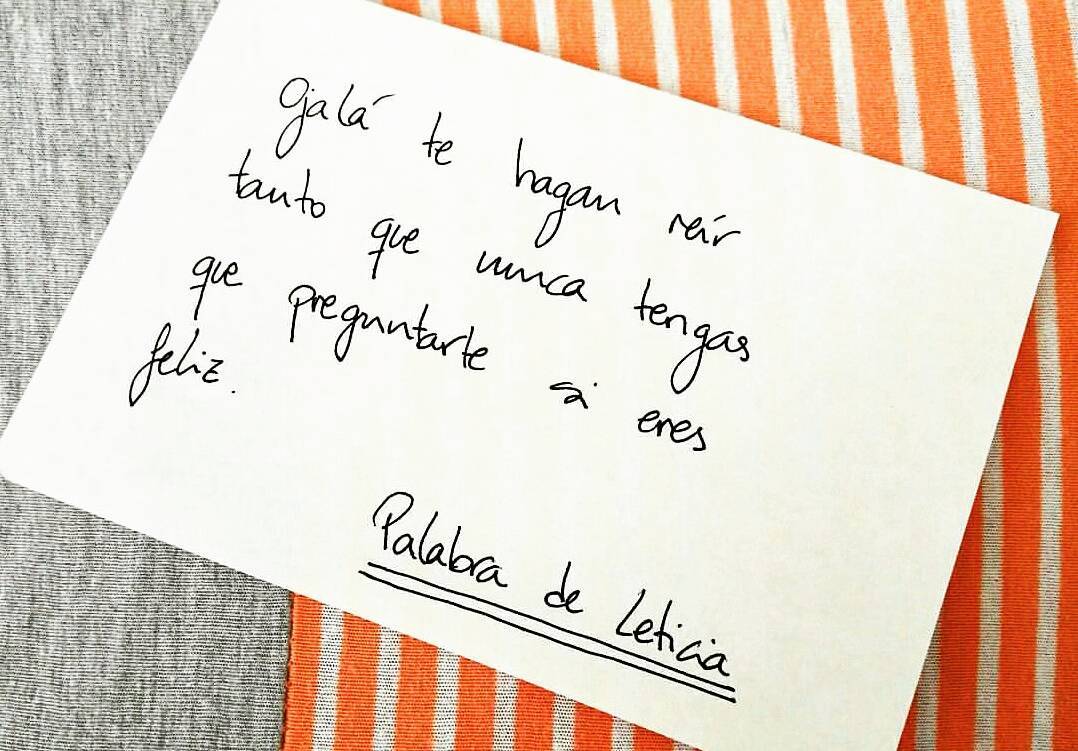 Ojalá te hagan reír
tanto que nunca tengas
que preguntarte si eres
feliz.
Palabra de Leticia